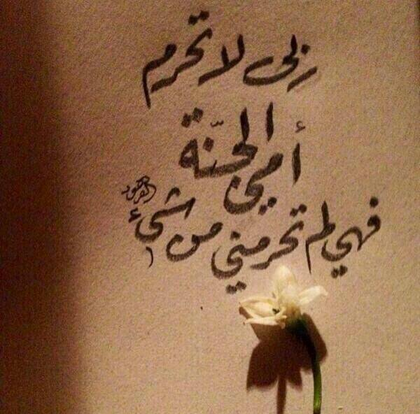 ربي لا تحرم
أمي الجنّة
فهي لم تحرمني من شيء